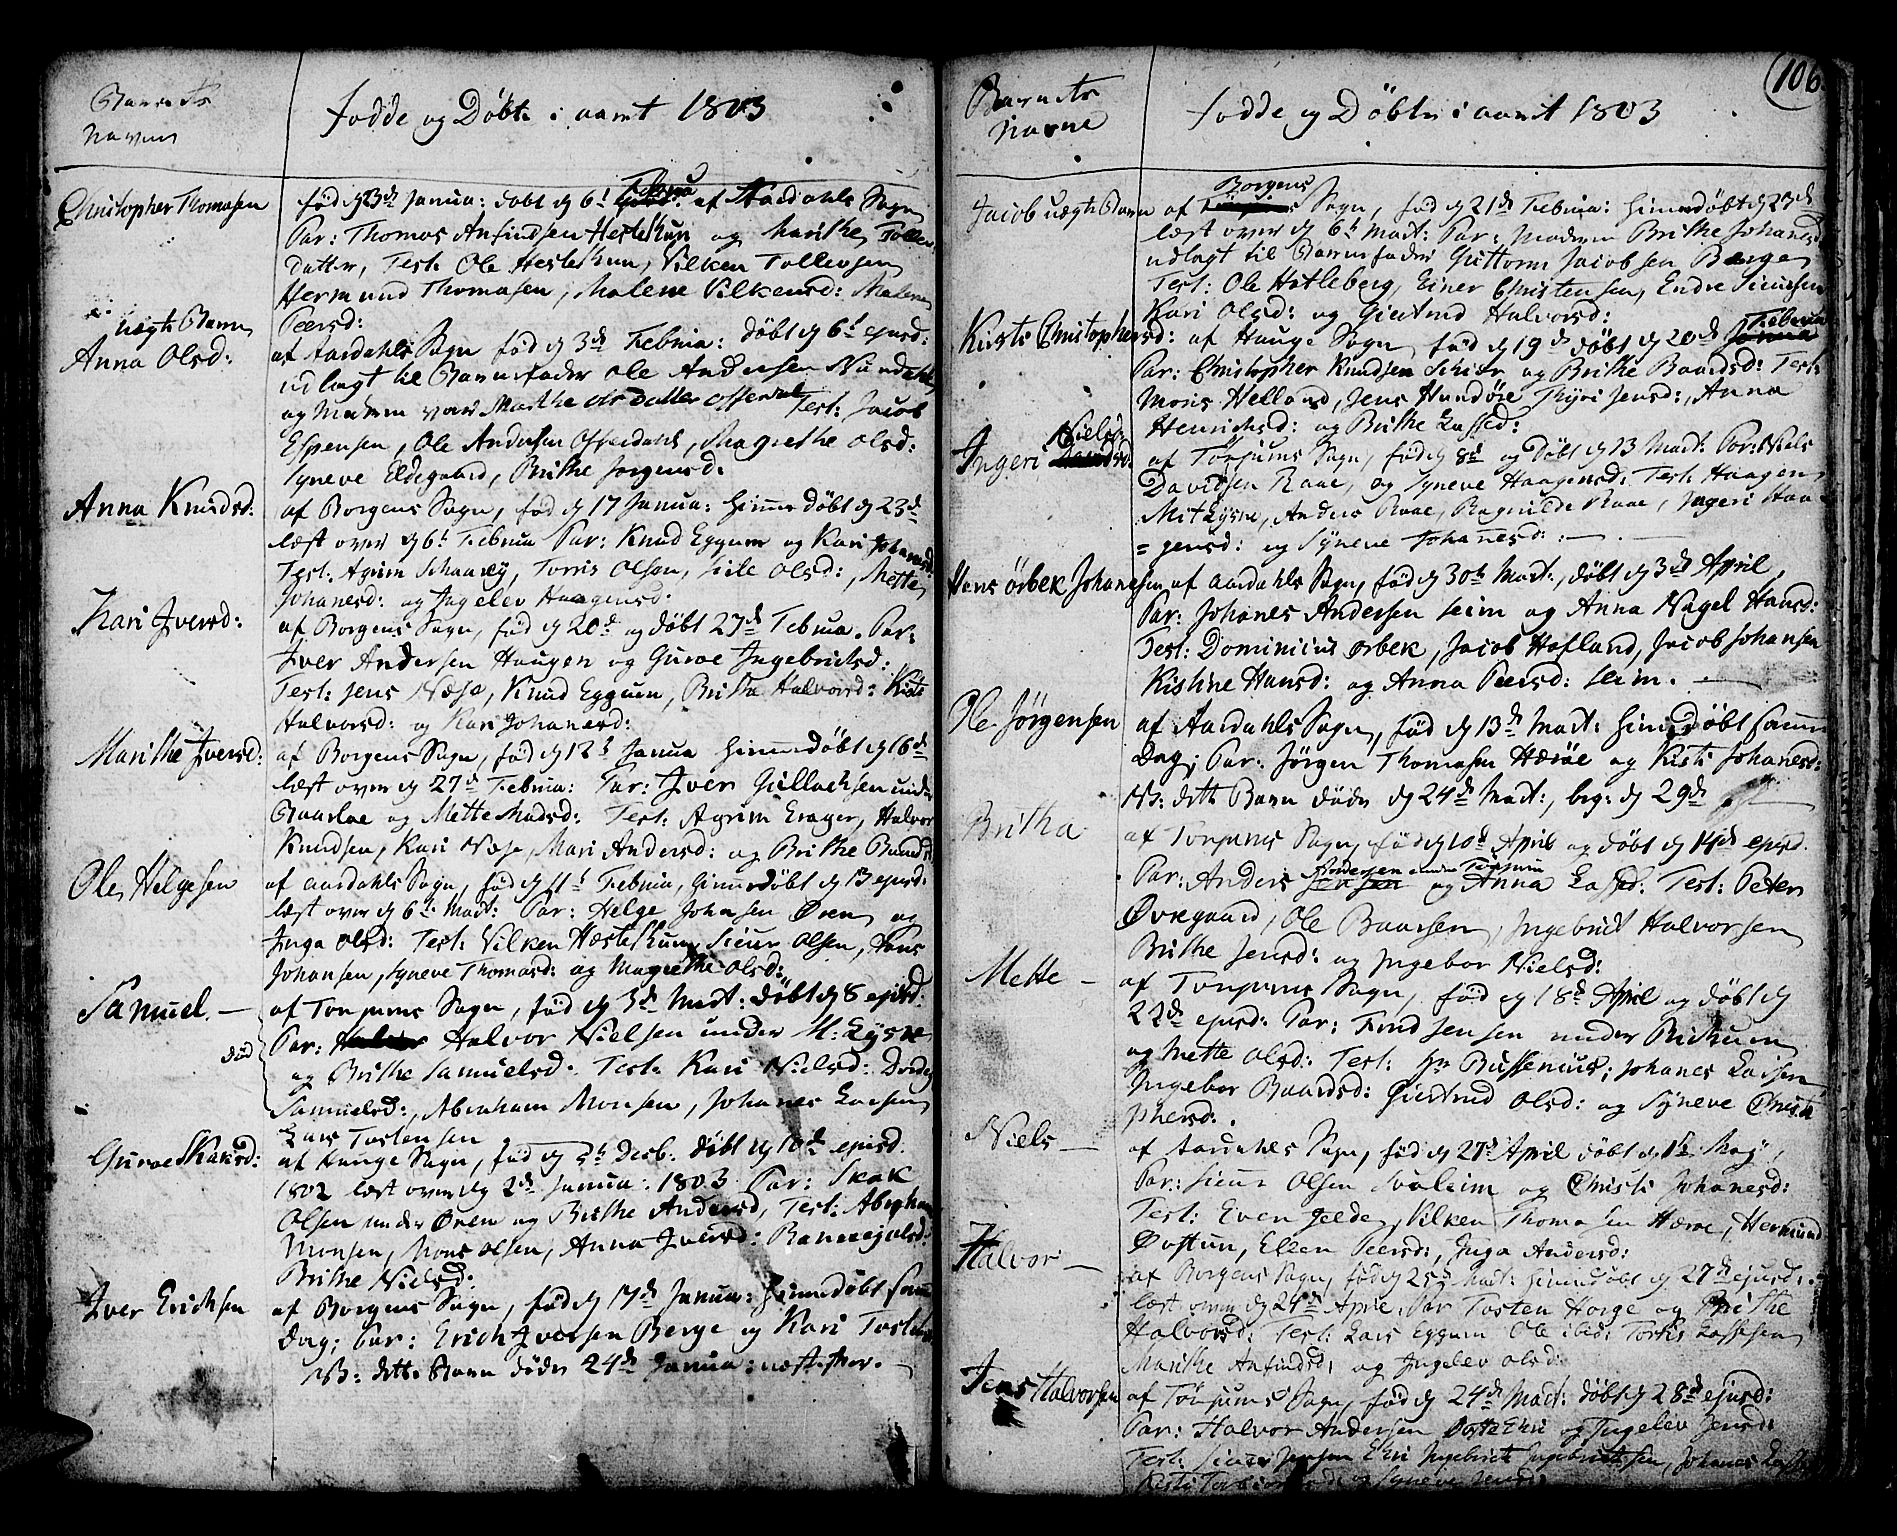 Barnets
Navn
Fødde og Døbte i aaret 1803
Christopher Thomasen
fød d 23de Janua: døbt d 6t Februa af Aardahls Sogn
Par: Thomas Anfindsen Hestekun og Marithe Tollev
datter, Test: Ole Hestekun, Vilken Tollevsen
Hermund Thomasen, Malene Vilkensd: Malene
Peersd:
uægte Barn
Anna Olsd:
af Aardahls Sogn fød d 3de Februa: døbt d 6t ejusd:
udlagt til Barnefader Ole Andersen Nundahl
og Moderen var Marthe Olsdatter Offerdal Test: Jacob
Espensen, Ole Andersen Offerdahl, Magrethe Olsd:
Syneve Eldegaard, Brithe Jørgensd:
Anna Knudsd:
af Borgens Sogn, fød d 17 Janua: hjemedøbt d 23de
læst over d 6t Februa Par: Knud Eggum og Kari Johanesd:
Test: Agrim, Torris Olsen, Olsd:, Mette
Johanesd: og Ingelev Haagensd:
Kari Iversd:
af Borgens Sogn, fød d 20de og døbt 27de Februa. Par:
Iver Andersen Haugen og Guroe Ingebrictsd:
Test: Jens Næse, Knud Eggum, Britha Halvorsd: Kisti
Halvorsd: og Kari Johanesd:
Marithe Iversd:
af Borgens Sogn, fød d 12t Janua hjemedøbt d 16de
læst over d 27de Februa: Par: Iver Gullachsen under
og Mette Madsd: Test: Agrim Erager, Halvor
Knudsen, Kari Næse, Mari Andersd: og Brithe
Ole Helgesen
af Aardahls Sogn, fød d 11t Februa, hjemedøbt d 13 ejusd:
læst over d 6t Mart: Par: Helge Johansen Øren og
Inga Olsd: Test: Vilken Hæstekun, Siur Olsen, Hans
Johansen, Syneve Thomasd: og Magrethe Olsd:
Samuel. —
død
af Tonjums Sogn, fød d 3de Mart: døbt d 8 ejusd:
Par: Halvor Nielsen under M: Lysne
og Brithe Samuelsd: Test: Kari Nielsd: Dordey
Samuelsd:, Abraham Monsen, Johanes Larsen
Lars Tostensen
Guroe Skaksd:
af Hauge Sogn, fød d 5t Decb. døbt d 10de ejusd.
1802 læst over d 2de Janua: 1803 Par: Skak
Olsen under Øren og Brithe Andersd, Test: Abraham
Monsen, Mons Olsen, Anna Iversd: Olsd:
Brithe Nielsd:
Iver Erichsen
af Borgens Sogn, fød d 17de Janua: hjemedøbt sam
Dag; Par: Erich Iversen Berge og Kari Tostens
NB: dette Barn døde 24de Janua: næstefter. —
106
Barnets
Navne
Fødde og Døbte i aaret 1803
Jacob uægte Barn
af Borgens Sogn, fød d 21de Februa: hjemedøbt d 23de
læst over d 6t Mart: Par: Moderen Brithe Johanesd
udlagt til Barnefader Guttorm Jacobsen Berge
Test: Ole Hatleberg, Einer Christensen, Endre Siursen
Kari Olsd: og Giertrud Halvorsd:
Kisti Christophersd:
af Hauge Sogn, fød d 19de døbt d 20de Februa
Par: Christopher Knudsen og Brithe Baardsd: Test:
Mons Helland, Jens Hundøre Thyri Jensd:, Anna
Henrichsd: og Brithe Lassed:
Ingeri Nielsd:
af Tønjums Sogn, fød d 8de og døbt d 13 Mart: Par: Niels
Davidsen Raae, og Syneve Haagensd: Test: Haagen
Mit Lysne, Anders Raae, Ragnilde Raae, Ingeri Haa
= gensd: og Syneve Johanesd: —
Hans Ørbek Johanesen
af Aardahls Sogn, fød d 30t Mart:, døbt d 3de April,
Par: Johanes Andersen Seim og Anna Nagel Hansd:
Test: Dominicus Ørbek, Jacob Hofland, Jacob Johansen
Kistine Hansd: og Anna Peersd: Seim. —
Ole Jørgensen
af Aardahls Sogn, fød d 13de Mart: hjemedøbt samme
Dag; Par: Jørgen Thomasen Hæroe og Kisti Johanesd:
NB: dette Barn døde d 24de Mart:, beg: d 29de
Britha
af Tonjums Sogn, fød d 10de April og døbt d 14de ejusd.
Par: Anders Andersen under Tønjum og Anna Lassed: Test: Peter
Øvregaard, Ole Baarsen, Ingebrict Halvorsen
Brithe Jensd: og Ingebor Nielsd:
Mette —
af Tonjums Sogn, fød d 18de April og døbt d
22de ejusd: Par: Find Jensen under Brikum
og Mette Olsd: Test: Hr Bussenius, Johanes Larsen
Ingebor Baardsd: Giertrud Olsd: og Syneve Christo
phersd:.
Niels —
af Aardahls Sogn, fød d 27de April døbt d 1te Maj,
Par: Siur Olsen Svaleim og Christi Johanesd:
Test: Even Jelde, Vilken Thomasen Hæroe, Hermund
Østun, Ellen Peersd:, Inga Andersd:
Halvor —
af Borgens Sogn, fød d 25de Mart: hjemedøbt d 27de ejusd:
læst over d 24de April, Par Tosten Horge og Brithe
Halvorsd: Test: Lars Eggum Ole ibid: Torkis Lassesen
Marithe Anfindsd: og Ingelev Olsd:
Jens Halvorsen
af Tønjums Sogn, fød d 24de Mart: døbt d 28de ejusd:
Par: Halvor Andersen og Ingelev Jensd:
Test: Siur Jensen Eri Ingebrict Ingebrictsen, Johanes
Kisti og Syneve Jensd: